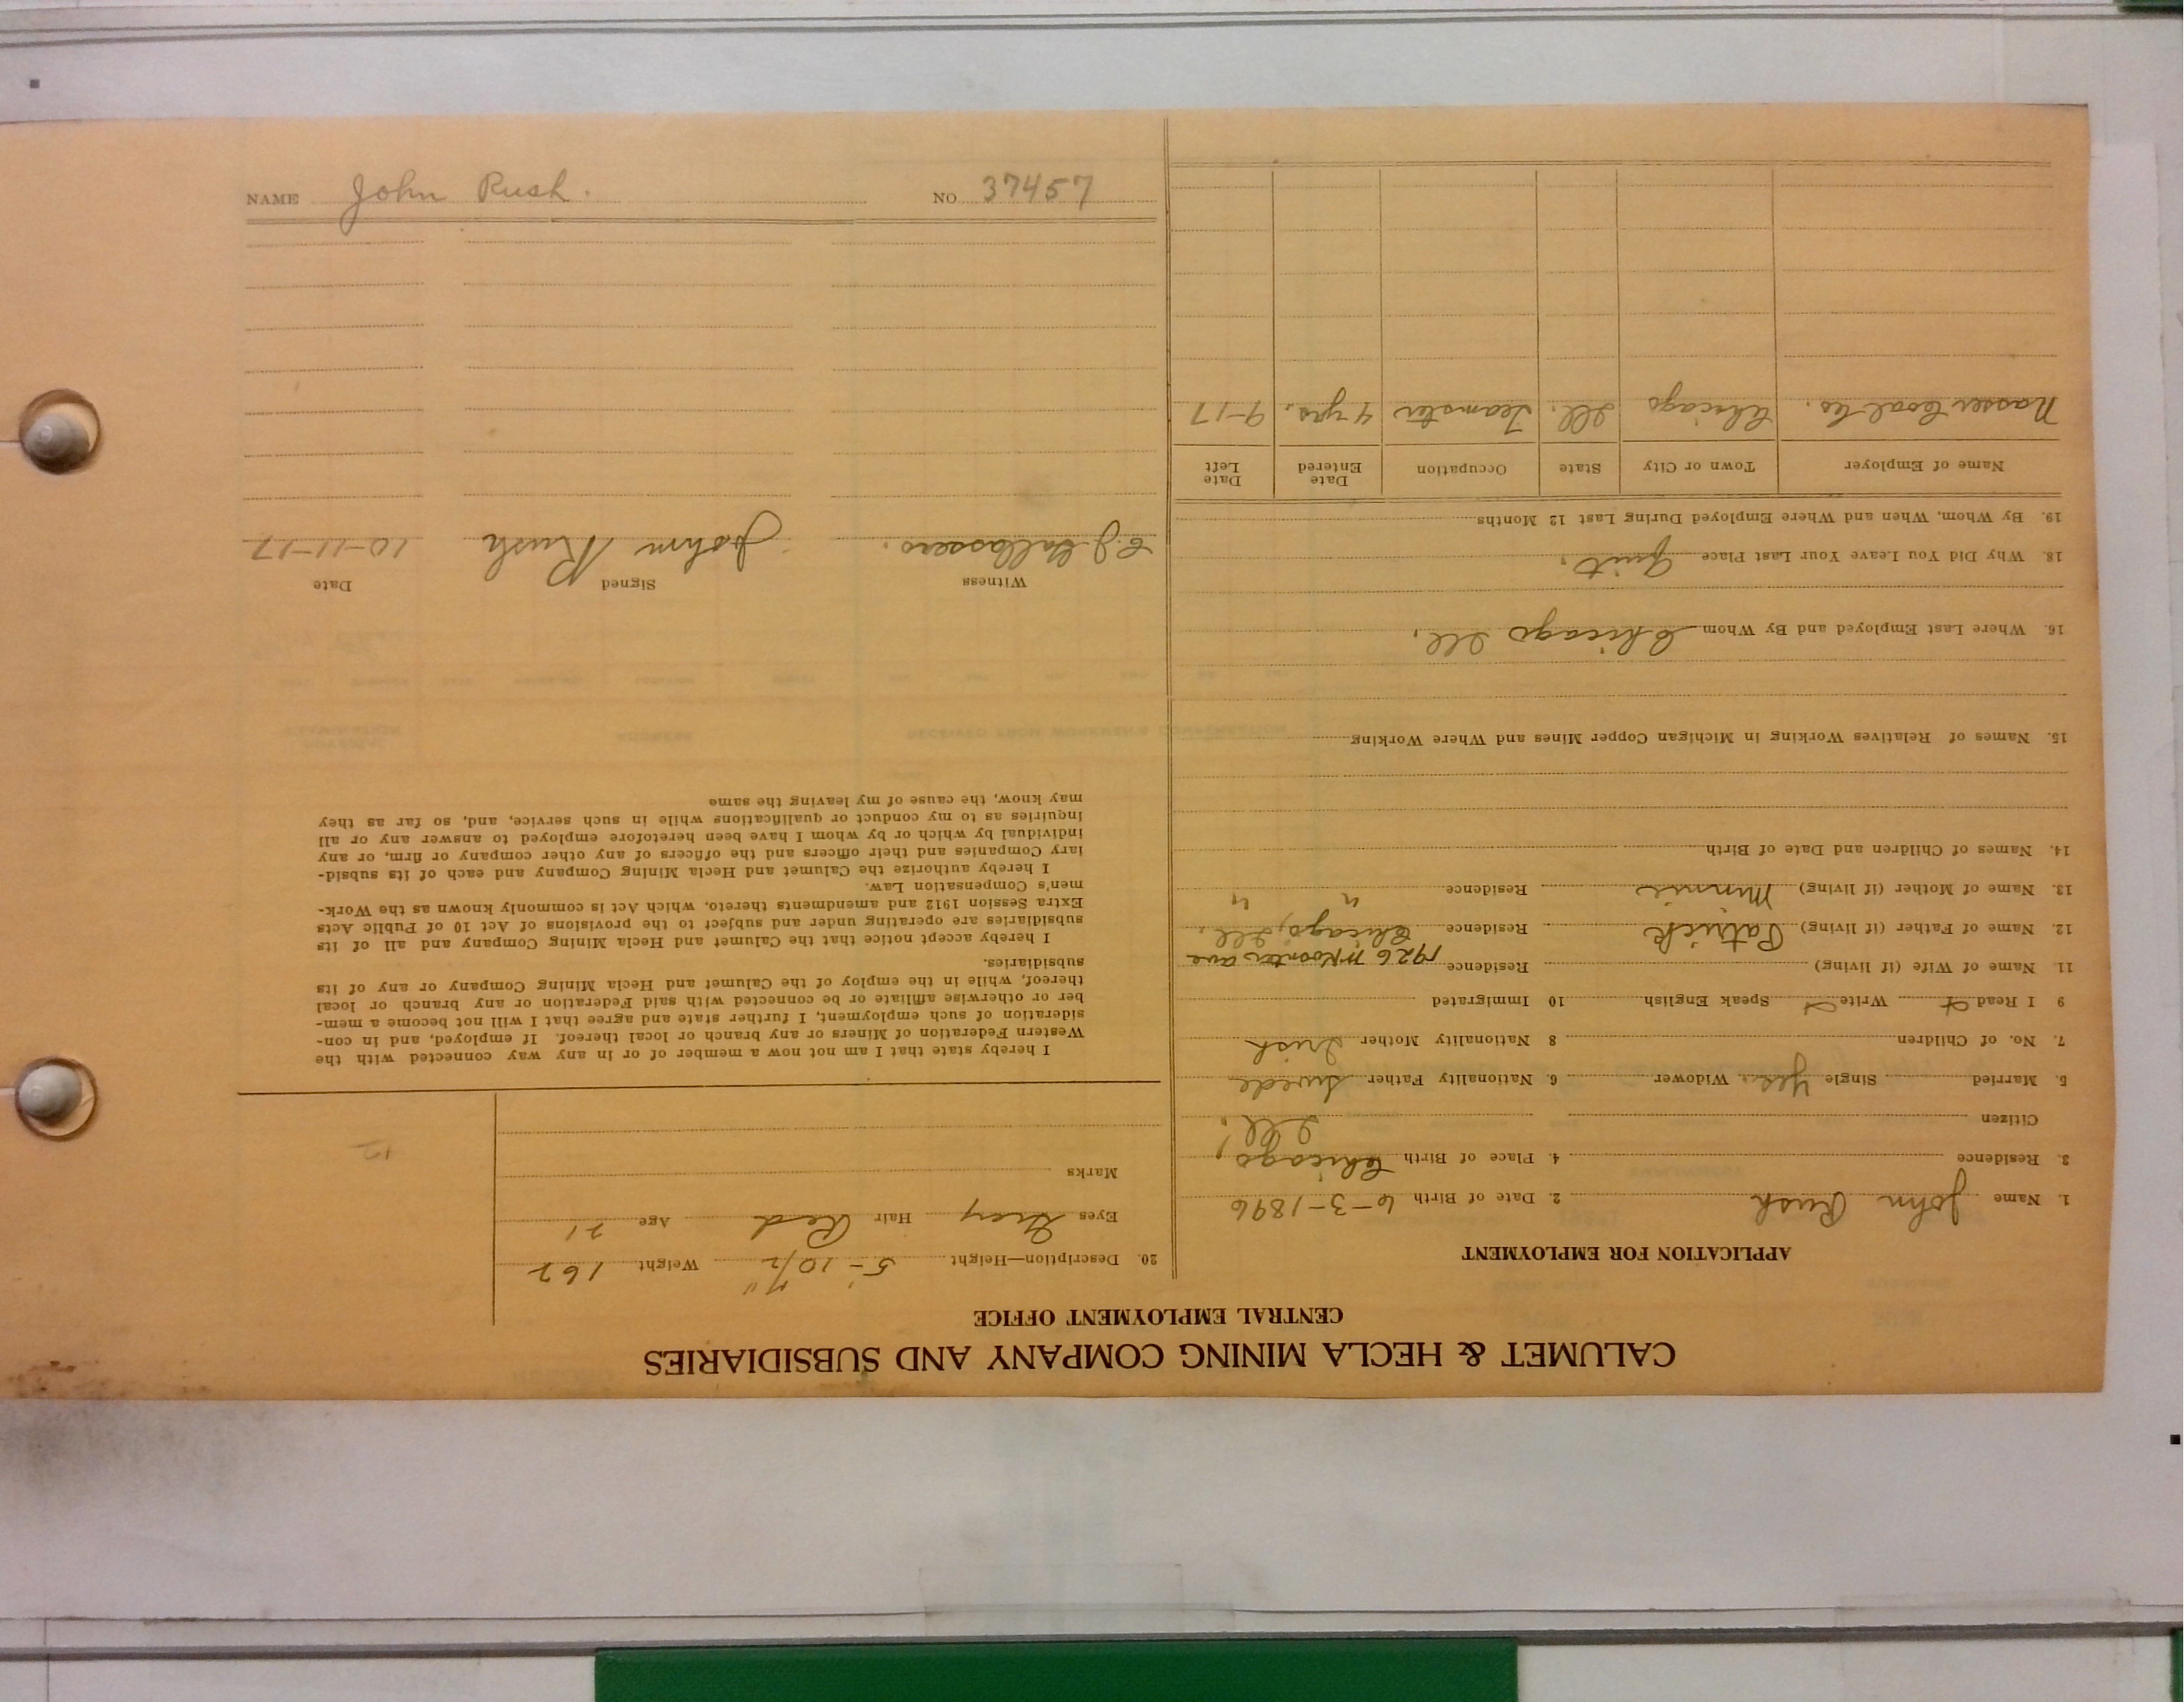 NAME John Rush. NO 37457
CALUMET & HECLA MINING COMPANY AND SUBSIDIARIES
CENTRAL EMPLOYMENT OFFICE
APPLICATION FOR EMPLOYMENT
1. Name John Rush 2. Date of Birth 6-3-1896
3. Residence 4. Place of Birth Chicago,
Citizen Ill.
5. Married Single Yes. Widower 6. Nationality Father Swede
7. No. of Children 8 Nationality Mother Irish
9 I Read Write Speak English 10 Immigrated
11. Name of Wife (if living) Residence 1926 ave
12. Name of Father (if living) Patrick Residence Chicago, Ill.
13. Name of Mother (if living) Minnie Residence " "
14. Names of Children and Date of Birth
15. Names of Relatives Working in Michigan Copper Mines and Where Working
16. Where Last Employed and By Whom Chicago Ill.
18. Why Did You Leave Your Last Place Quit.
19. By Whom, When and Where Employed During Last 12 Months
Name of Employer Town or City State Occupation Date Entered Date Left
Coal Co. Chicago Ill. Teamster 4 yrs. 9-17
20. Description—Height 5'-10 1/2" Weight 162
Eyes Gray Hair Red Age 21
Marks
12
I hereby state that I am not now a member of or in any way connected with the
Western Federation of Miners or any branch or local thereof. If employed, and in con-
sideration of such employment, I further state and agree that I will not become a mem-
ber or otherwise affiliate or be connected with said Federation or any branch or local
thereof, while in the employ of the Calumet and Hecla Mining Company or any of its
subsidiaries.
I hereby accept notice that the Calumet and Hecla Mining Company and all of its
subsidiaries are operating under and subject to the provisions of Act 10 of Public Acts
Extra Session 1912 and amendments thereto, which Act is commonly known as the Work-
men's Compensation Law.
I hereby authorize the Calumet and Hecla Mining Company and each of its subsid-
iary Companies and their officers and the officers of any other company or firm, or any
individual by which or by whom I have been heretofore employed to answer any or all
inquiries as to my conduct or qualifications while in such service, and, so far as they
may know, the cause of my leaving the same
Witness Signed Date
John Rush 10-11-17